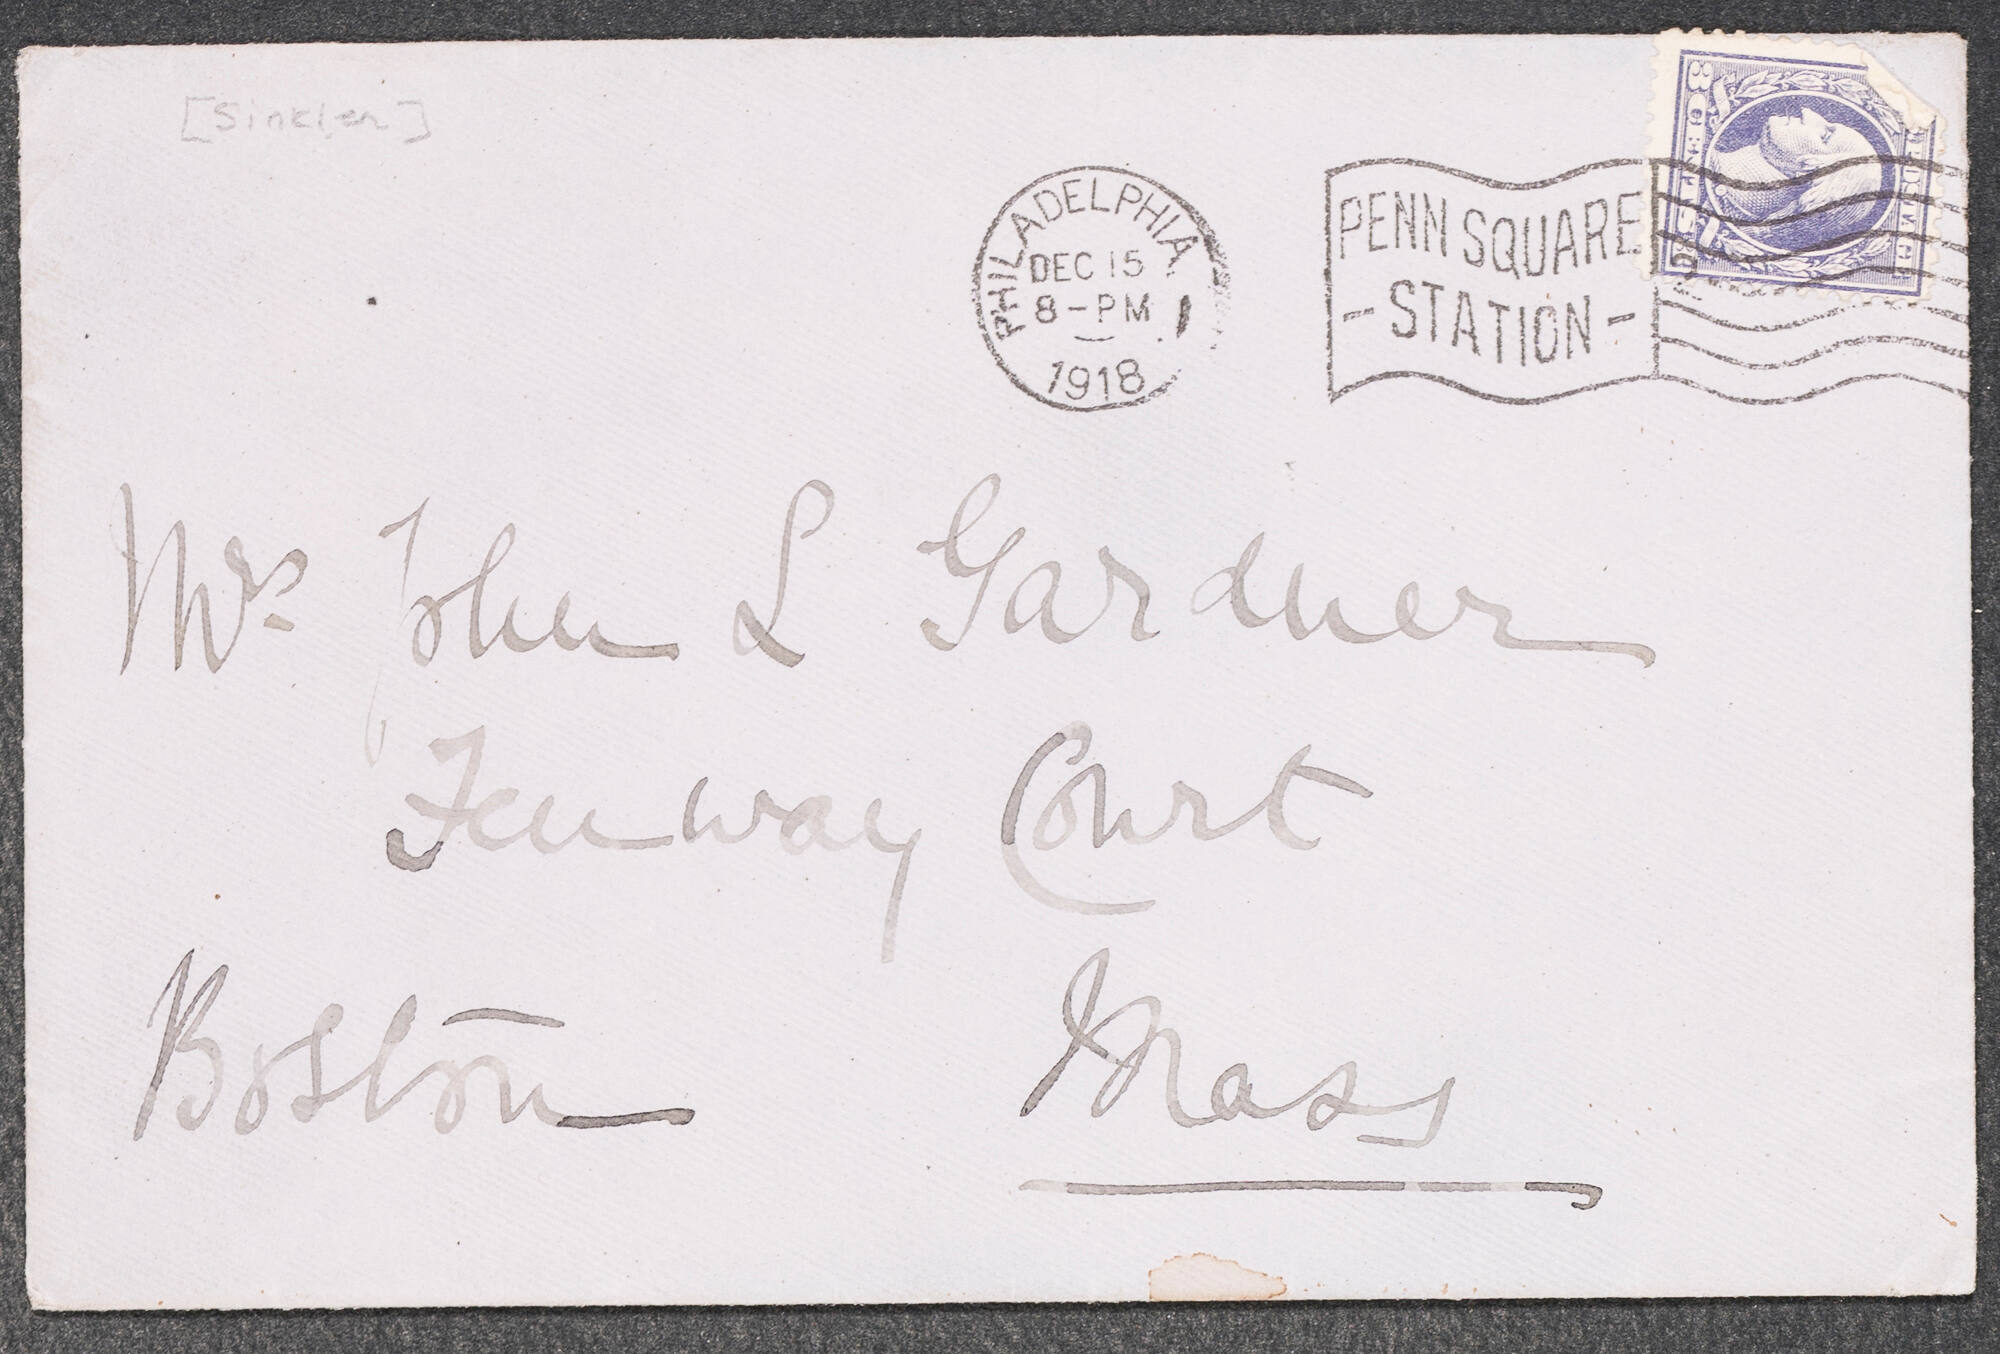 [Sinkler]
PHILADELPHIA
DEC 15
8-PM
1
1918
PENN SQUARE
-STATION-
U.S. POSTAGE
Mrs. John L Gardner
Fenway Court
Boston Mass